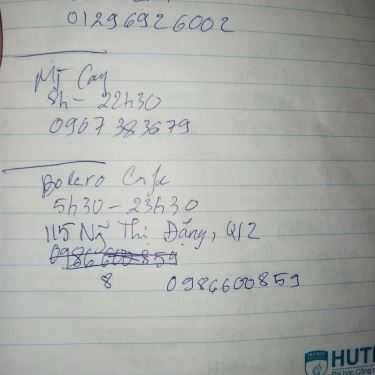 01296926002
Mỹ Cay
8h - 22h30
0967 383679
Bolero Cafe
5h30 - 23h30
115 Ng̃ Thị Đặng, Q12
0986600859
8 0986600859
HUT